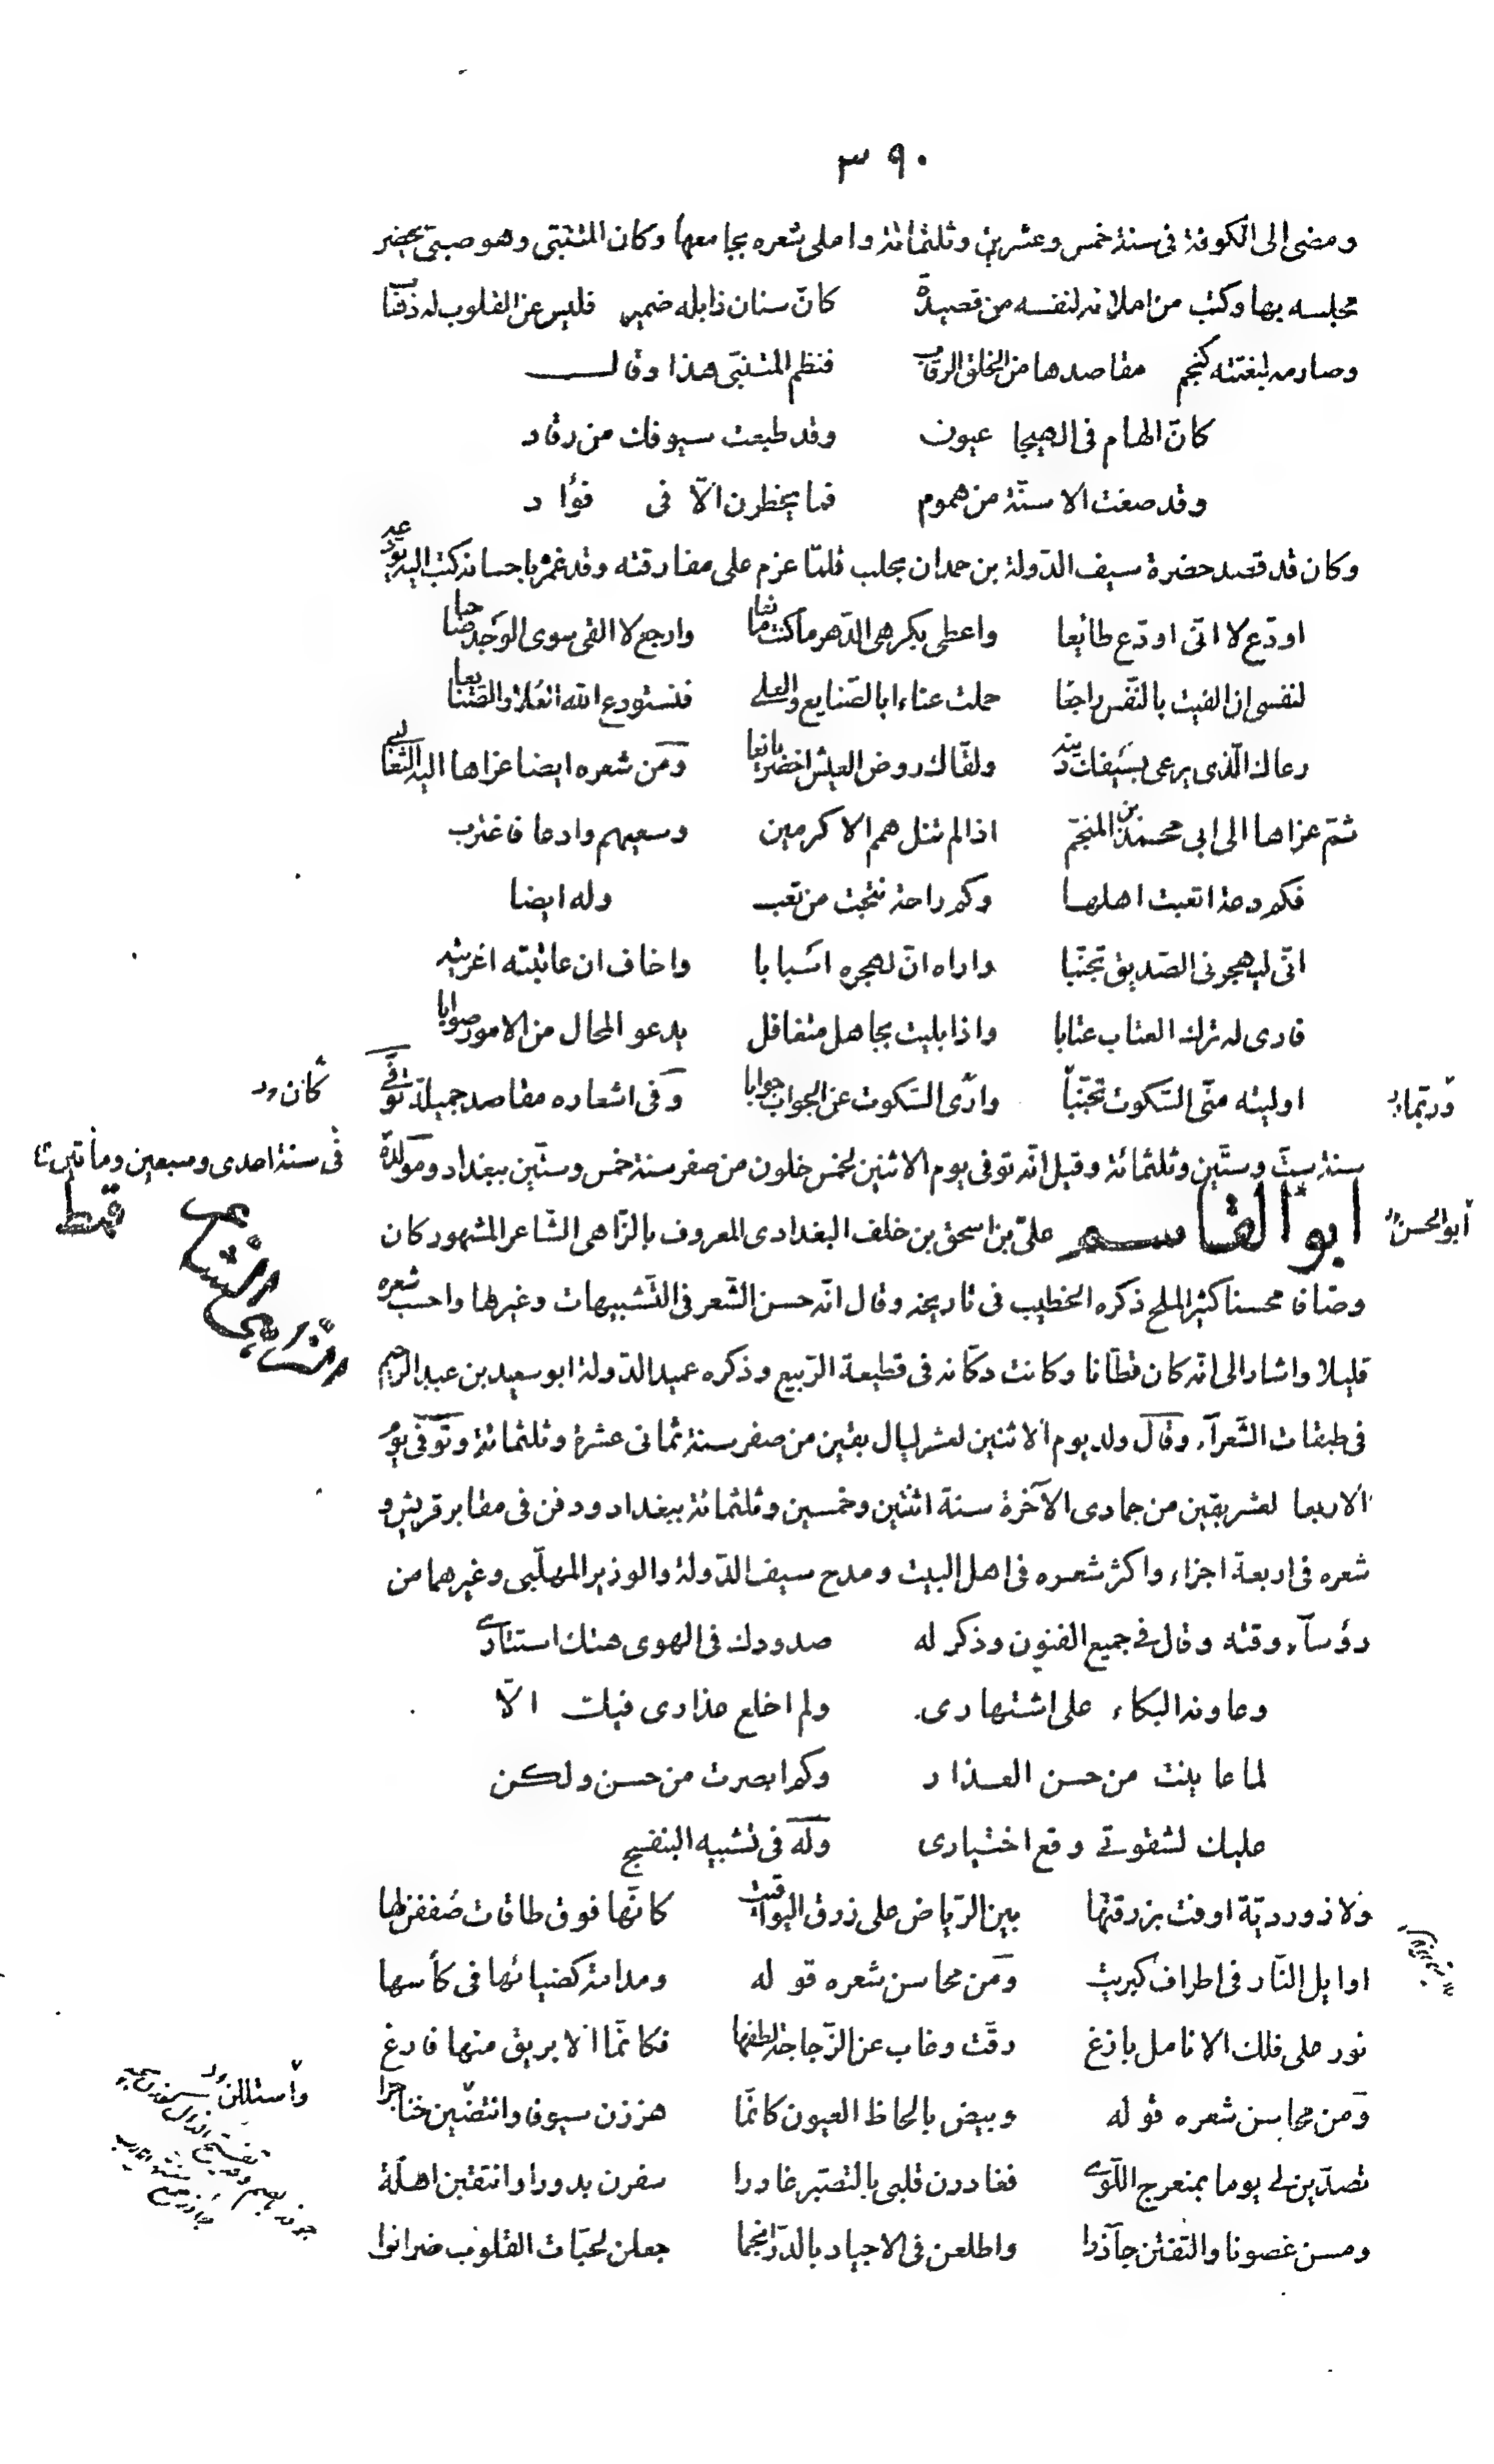 ٣٩٠
ومضى الى الكوفة فى سنة خمس وعشرين وثلثمائة واملى شعره بجامعها وكان المتنبى وهو صبى يحضر
مجلسه بها وكتب من املائه لنفسه من قصيدة كانّ سنان ذابله ضمير فليس عن القلوب له ذهاب
وصارمه لبغتته كنجم مقاصدها من الخلق الرقاب فنظم المتنبّى هذا وقال
كانّ الهام فى الهيجا عيون وقد طبعت سيوفك من رقاد
وقد صغت الاسنّة من هموم فما يخطرن الّا فى فؤاد
وكان قد قصد حضرة سيف الدّولة بن حمدان بحلب فلمّا عزم على مفارقته وقد غمره باحسانه كتب اليه يودعه
اودّع لا انّى اودّع طائعا واعطى بكرهى الدّهر ما كنت مانعا وارجع لا القى سوى الوَجد صاحبا
لنفسى ان الفيت بالنّفس راجعًا حملت عناء ابا لصّنايع والعلى فنستودع الله العُلا والصّنايعا
رعاك الّذى يرعى بسَيفك دينه ولقّاك روض العيش اخضر يانعا ومن شعره ايضا عزاها اليه الثعالبى
ثمّ عزاها الى ابى محمد بن المنجّم اذا لم تنل همم الاكرمين وسعيهم وادعا فاغترب
فكم دعة اتعبت اهلها وكم راحة نتجت من تعب وله ايضا
انّى ليهجرنى الصّديق تجنّبا واراه انّ لهجره اسَبابا واخاف ان عاتبته اغريته
فارى له ترك العتاب عتابا واذا بليت بجاهل متغافل يدعو المحال من الامور صوابا
اوليته منّى السّكوت تجّنباً واَرى السّكوت عن الجواب جوابا وفى اشعاره مقاصد جميلة توفّى
وربّما
كان
سنة ستّ وستّين وثلثمائة وقيل انّه توفى يوم الاثنين لخمس خلون من صفر سنة خمس وستّين ببغداد ومولده
فى سنة احدى وسبعين ومأتين
ابو القاسم علىّ بن اسحق بن خلف البغدادى المعروف بالزّاهى الشّاعر المشهور كان
ابو الحسن
الزّاهى الشّاعر
وصّافا محسنا كثير الملح ذكره الخطيب فى تاريخه وقال انّه حسن الشّعر فى التّشبيهات وغيرها واحسب شعره
قليلا واشار الى انّه كان قطّانا وكانت دكّانه فى قطيعة الرّبيع وذكره عميد الدّولة ابو سعيد بن عبد الرّحيم
فى طبقات الشّعرآء وقال ولد يوم الاثنين لعشر ليال بقين من صفر سنة ثمانى عشرة وثلثمائة وتوفى يوم
الاربعا لعشر بقين من جمادى الآخرة سنة اثنتين وخمسين وثلثمائة ببغداد ودفن فى مقابر قريش و
شعره فى اربعة اجزاء واكثر شعره فى اهل البيت ومدح سيف الدّولة والوزير المهلّبى وغيرهما من
رؤسآء وقته وقال فى جميع الفنون وذكر له صدودك فى الهوى هتك استتارى
وعاونه البكاء على اشتهارى ولم اخلع عذارى فيك الّا
لما عاينت من حسن العذار وكم ابصرت من حسن ولكن
عليك لشقوتى وقع اختيارى وله فى تشبيه البنفسج
ولازورديّة اوفت بزرقتها بين الرّياض على زرق اليواقيت كانّها فوق طاقات ضُففن لها
اوايل النّار فى اطراف كبريت ومن محاسن شعره قوله ومدامة كضيائها فى كأسها
نور على فلك الانامل بازغ رقّت وغاب عن الزّجاجة لطفها فكانّما الابريق منها فارغ
ومن محاسن شعره قوله وبيض بالحاظ العيون كانّما هززن سيوفا وانتضين خناجرا
واستللن
تصدّين لى يوما بمنعرج اللّوى فغادرن قلبى بالتصبّر غادرا سفرن بدورا وانتقبن اهلّة
ومسن غصونا والتفتن جآذرا واطلعن فى الاجياد بالدّر انجما جعلن لحبّات القلوب ضرائرا